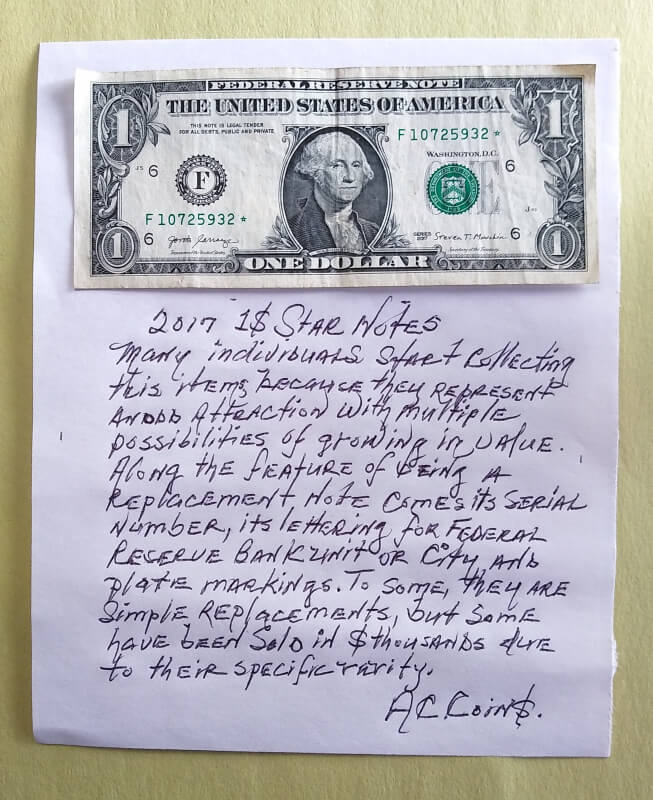 FEDERAL RESERVE NOTE
THE UNITED STATES OF AMERICA
THIS NOTE IS LEGAL TENDER
FOR ALL DEBTS, PUBLIC AND PRIVATE
F 10725932 *
WASHINGTON, D.C.
1
1
J5 6
6
F
F 10725932 *
6
6
SERIES
2017
Steven T. Mnuchin
Secretary of the Treasury
Treasurer of the United States
1
1
ONE DOLLAR
2017 1$ STAR NOTES
Many individuals start collecting
this items, because they REPRESENT
AN ODD ATTRACTION with multiple
possibilities of growing in value.
Along the feature of being A
REPLACEMENT NOTE COMES its SERIAL
Number, its lettering for FEDERAL
RESERVE BANK UNIT OR City, AND
plate markings. To some, they ARE
simple REPLACEMENTS, but some
have been sold in $thousands due
to their specific rarity.
AC Coin$.